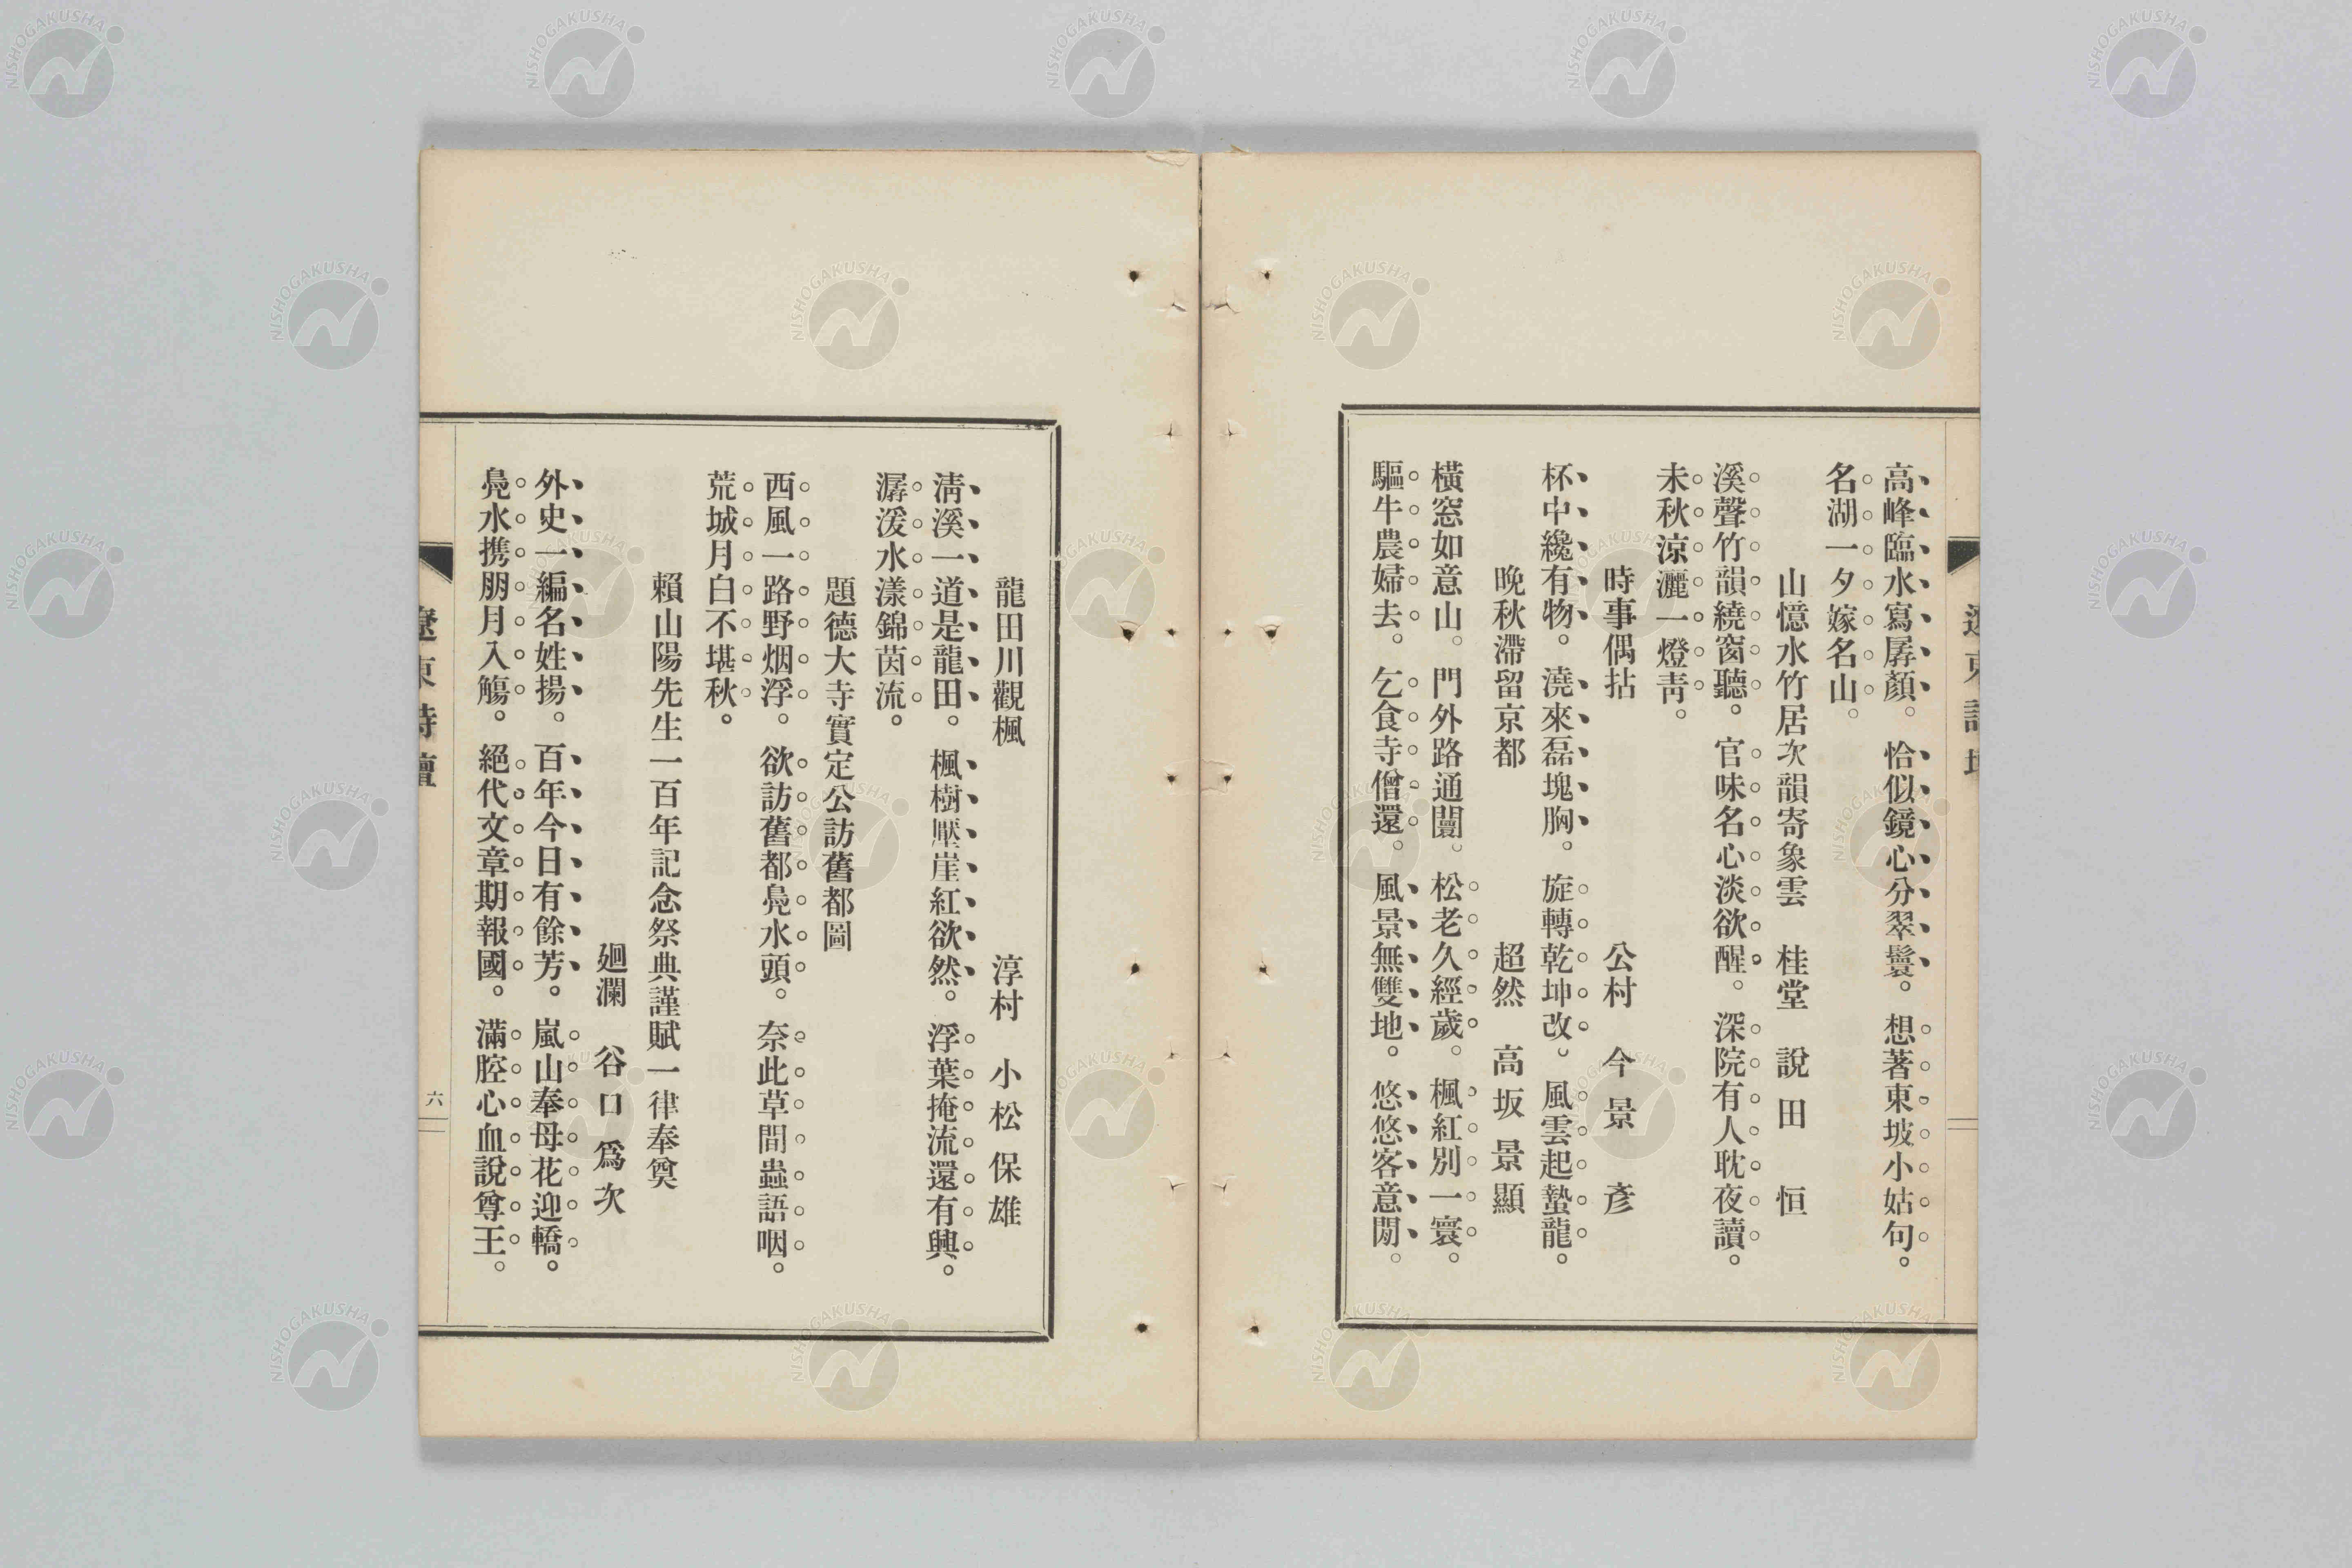 高峰臨水寫孱顏。恰似鏡心分翠鬟。想著東坡小姑句。
名湖一夕嫁名山。
山憶水竹居次韻寄象雲 桂堂 說田 恒
溪聲竹韻繞窗聽。官味名心淡欲醒。深院有人耽夜讀。
未秋涼灑一燈靑。
時事偶拈 公村 今景 彥
杯中纔有物。澆來磊塊胸。旋轉乾坤改。風雲起蟄龍。
晚秋滯留京都 超然 高坂景顯
橫窓如意山。門外路通闤。松老久經歲。楓紅別一寰。
驅牛農婦去。乞食寺僧還。風景無雙地。悠悠客意閒。
遼東詩壇
龍田川觀楓 淳村 小松保雄
淸溪一道是龍田。楓樹壓崖紅欲然。浮葉掩流還有興。
潺湲水漾錦茵流。
題德大寺實定公訪舊都圖
西風一路野烟浮。欲訪舊都鳧水頭。奈此草間蟲語咽。
荒城月白不堪秋。
賴山陽先生一百年記念祭典謹賦一律奉奠
廻瀾 谷口爲次
外史一編名姓揚。百年今日有餘芳。嵐山奉母花迎轎。
鳧水携朋月入觴。絕代文章期報國。滿腔心血說尊王。
遼東詩壇
六
NISHOGAKUSHA